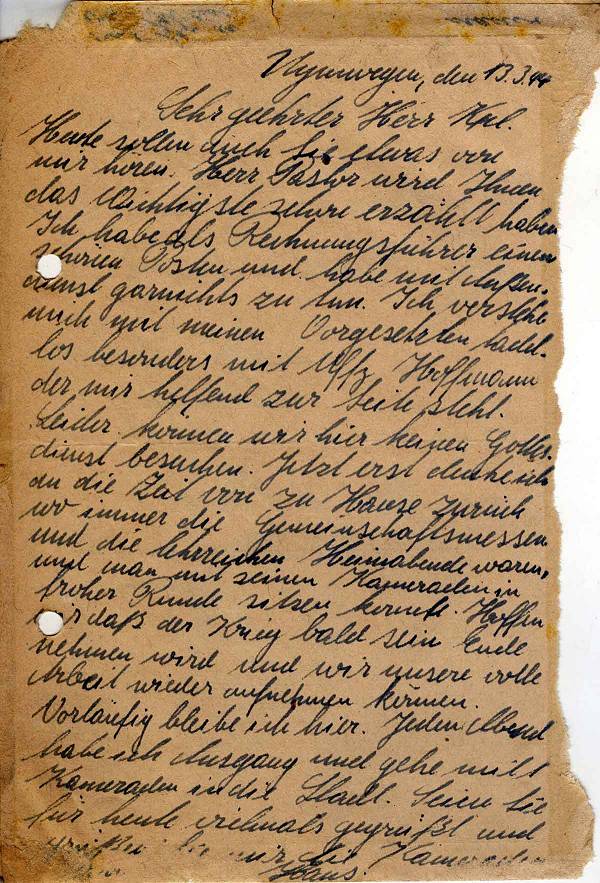 Nymwegen, den 13.3.44
Sehr geehrter Herr Kpl.
Heute sollen auch Sie etwas von
mir hören. Herr Pastor wird Ihnen
das Wichtigste schon erzählt haben
Ich habe als Rechnungsführer einen
schönen Posten und habe mit Außen-
dienst garnichts zu tun. Ich verstehe
mich mit meinen Vorgesetzten tadel-
los besonders mit Uffz Hoffmann
der mir helfend zur Seite steht.
Leider können wir hier keinen Gottes-
dienst besuchen. Jetzt erst denke ich
an die Zeit von zu Hause zurück
wo immer die Gemeinschaftsmessen
und die lehrreichen Heimabende waren,
und man mit seinen Kameraden in
froher Runde sitzen konnte. Hoffen
wir daß der Krieg bald sein Ende
nehmen wird und wir unsere volle
Arbeit wieder aufnehmen können.
Vorläufig bleibe ich hier. Jeden Abend
habe ich Ausgang und gehe mitt
Kameraden in die Stadt. Seien Sie
für heute vielmals gegrüßt und
grüßen Sie mir die Kameraden
Hans.